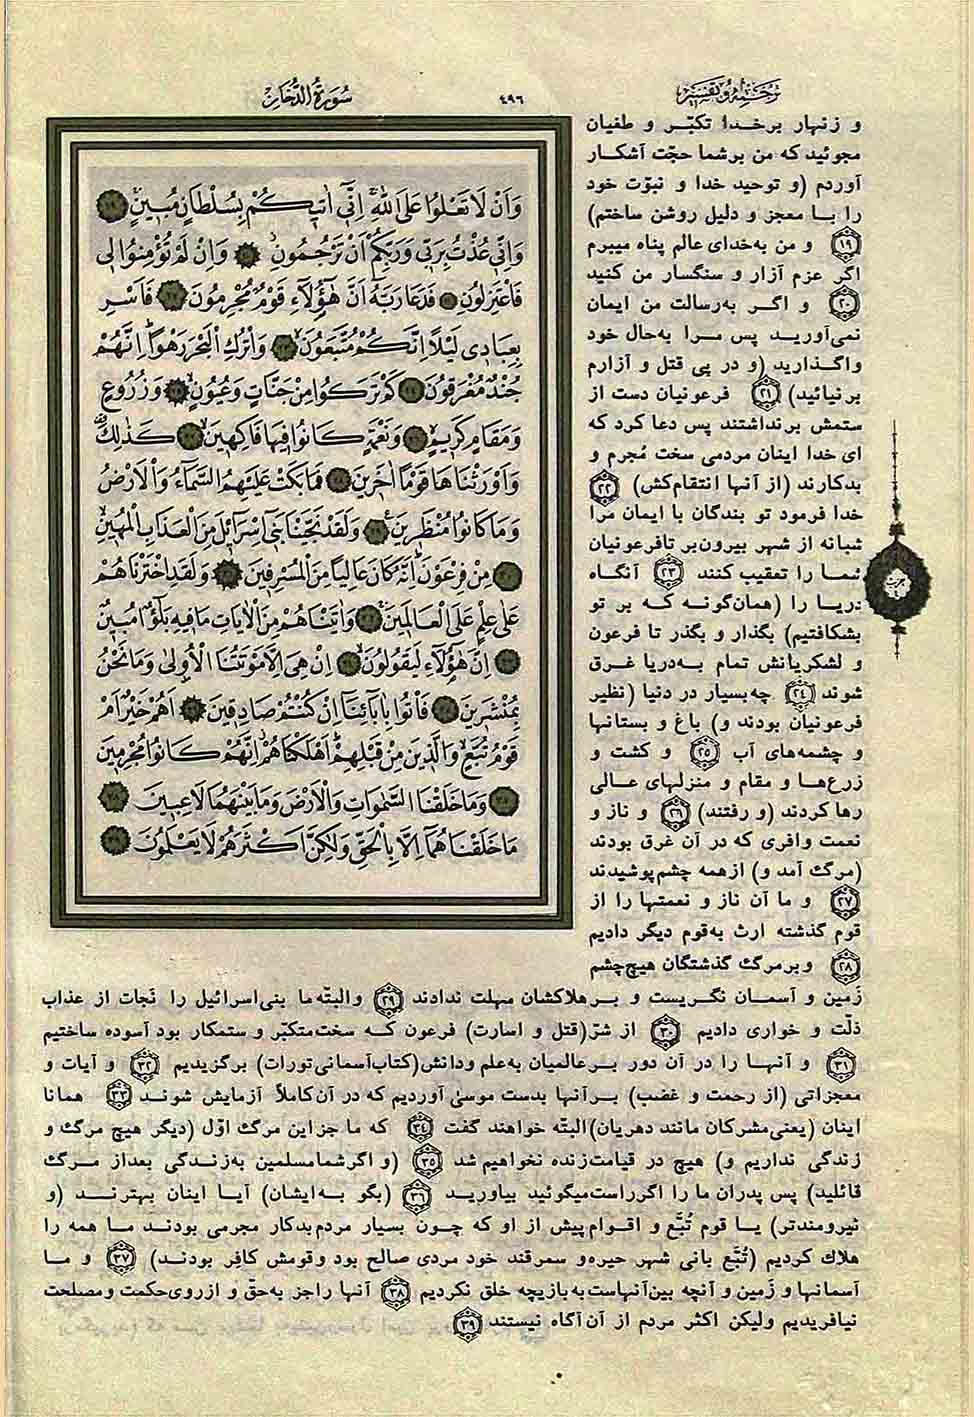 ترجمه و تفسیر
٤٩٦
سورة الدخان
وَاَنْ لَا تَعْلُوا عَلَى اللّٰهِ اِنّٖى اٰتٖيكُمْ بِسُلْطَانٍ مُبٖينٍ ١٩
وَاِنّٖى عُذْتُ بِرَبّٖى وَرَبِّكُمْ اَنْ تَرْجُمُونِ ٢٠ وَاِنْ لَمْ تُؤْمِنُوا لٖى
فَاعْتَزِلُونِ ٢١ فَدَعَا رَبَّهُ اَنَّ هٰٓؤُلَاءِ قَوْمٌ مُجْرِمُونَ ٢٢ فَاَسْرِ
بِعِبَادٖى لَيْلًا اِنَّكُمْ مُتَّبَعُونَ ٢٣ وَاتْرُكِ الْبَحْرَ رَهْوًا اِنَّهُمْ
جُنْدٌ مُغْرَقُونَ ٢٤ كَمْ تَرَكُوا مِنْ جَنَّاتٍ وَعُيُونٍ ٢٥ وَزُرُوعٍ
وَمَقَامٍ كَرٖيمٍ ٢٦ وَنَعْمَةٍ كَانُوا فٖيهَا فَاكِهٖينَ ٢٧ كَذٰلِكَ
وَاَوْرَثْنَاهَا قَوْمًا اٰخَرٖينَ ٢٨ فَمَا بَكَتْ عَلَيْهِمُ السَّمَاءُ وَالْاَرْضُ
وَمَا كَانُوا مُنْظَرٖينَ ٢٩ وَلَقَدْ نَجَّيْنَا بَنٖى اِسْرَائٖلَ مِنَ الْعَذَابِ الْمُهٖينِ
٣٠ مِنْ فِرْعَوْنَ اِنَّهُ كَانَ عَالِيًا مِنَ الْمُسْرِفٖينَ ٣١ وَلَقَدِ اخْتَرْنَاهُمْ
عَلٰى عِلْمٍ عَلَى الْعَالَمٖينَ ٣٢ وَاٰتَيْنَاهُمْ مِنَ الْاٰيَاتِ مَا فٖيهِ بَلٰٓؤٌا مُبٖينٌ
٣٣ اِنَّ هٰٓؤُلَاءِ لَيَقُولُونَ ٣٤ اِنْ هِىَ اِلَّا مَوْتَتُنَا الْاُولٰى وَمَا نَحْنُ
بِمُنْشَرٖينَ ٣٥ فَاْتُوا بِاٰبَائِنَا اِنْ كُنْتُمْ صَادِقٖينَ ٣٦ اَهُمْ خَيْرٌ اَمْ
قَوْمُ تُبَّعٍ وَالَّذٖينَ مِنْ قَبْلِهِمْ اَهْلَكْنَاهُمْ اِنَّهُمْ كَانُوا مُجْرِمٖينَ
٣٧ وَمَا خَلَقْنَا السَّمٰوَاتِ وَالْاَرْضَ وَمَا بَيْنَهُمَا لَاعِبٖينَ ٣٨
مَا خَلَقْنَاهُمَا اِلَّا بِالْحَقِّ وَلٰكِنَّ اَكْثَرَهُمْ لَا يَعْلَمُونَ ٣٩
و زنهار برخدا تکبّر و طغیان
مجوئید که من برشما حجّت آشکار
آوردم (و توحید خدا و نبوّت خود
را با معجز و دلیل روشن ساختم)
۱۹ و من به‌خدای عالم پناه میبرم
اگر عزم آزار و سنگسار من کنید
۲۰ و اگر به‌رسالت من ایمان
نمی‌آورید پس مرا به‌حال خود
واگذارید (و در پی قتل و آزارم
برنیائید) ۲۱ فرعونیان دست از
ستمش برنداشتند پس دعا کرد که
ای خدا اینان مردمی سخت مُجرم و
بدکارند (از آنها انتقام‌کش) ۲۲
خدا فرمود تو بندگان با ایمان مرا
شبانه از شهر بیرون‌بر تافرعونیان
شما را تعقیب کنند ۲۳ آنگاه
دریا را (همان‌گونه که بر تو
بشکافتیم) بگذار و بگذر تا فرعون
و لشکریانش تمام به‌دریا غرق
شوند ۲۴ چه‌بسیار در دنیا (نظیر
فرعونیان بودند و) باغ و بستانها
و چشمه‌های آب ۲۵ و کشت و
زرع‌ها و مقام و منزلهای عالی
رها کردند (و رفتند) ۲۶ و ناز و
نعمت وافری که در آن غرق بودند
(مرگ آمد و) ازهمه چشم‌پوشیدند
۲۷ و ما آن ناز و نعمتها را از
قوم گذشته ارث به‌قوم دیگر دادیم
۲۸ وبرمرگ گذشتگان هیچ‌چشم
زمین و آسمان نگریست و برهلاکشان مهلت ندادند ۲۹ والبتّه‌ما بنی‌اسرائیل را نجات از عذاب
ذلّت و خواری دادیم ۳۰ از شرّ(قتل و اسارت) فرعون که سخت‌متکبّر و ستمکار بود آسوده ساختیم
۳۱ و آنها را در آن دور برعالمیان به‌علم ودانش(کتاب‌آسمانی‌تورات) برگزیدیم ۳۲ و آیات و
معجزاتی (از رحمت و غضب) برآنها بدست موسیٰ آوردیم که در آن‌کاملاً آزمایش شوند ۳۳ همانا
اینان (یعنی‌مشرکان مانند دهریان)البتّه خواهند گفت ۳۴ که ما جزاین مرگ اوّل (دیگر هیچ مرگ و
زندگی نداریم و) هیچ در قیامت‌زنده نخواهیم شد ۳۵ (و اگرشمامسلمین به‌زندگی بعداز مرگ
قائلید) پس پدران ما را اگرراست‌میگوئید بیاورید ۳۶ (بگو به‌ایشان) آیا اینان بهترند (و
نیرومندتر) یا قوم تُبَّع و اقوام‌پیش از او که چون بسیار مردم‌بدکار مجرمی بودند ما همه را
هلاك کردیم (تُبَّع بانی شهر حیره‌و سمرقند خود مردی صالح بود وقومش کافر بودند) ۳۷ و ما
آسمانها و زمین و آنچه بین‌آنهاست به‌بازیچه خلق نکردیم ۳۸ آنها راجز به‌حقّ و ازروی‌حکمت ومصلحت
نیافریدیم ولیکن اکثر مردم از آن‌آگاه نیستند ۳۹